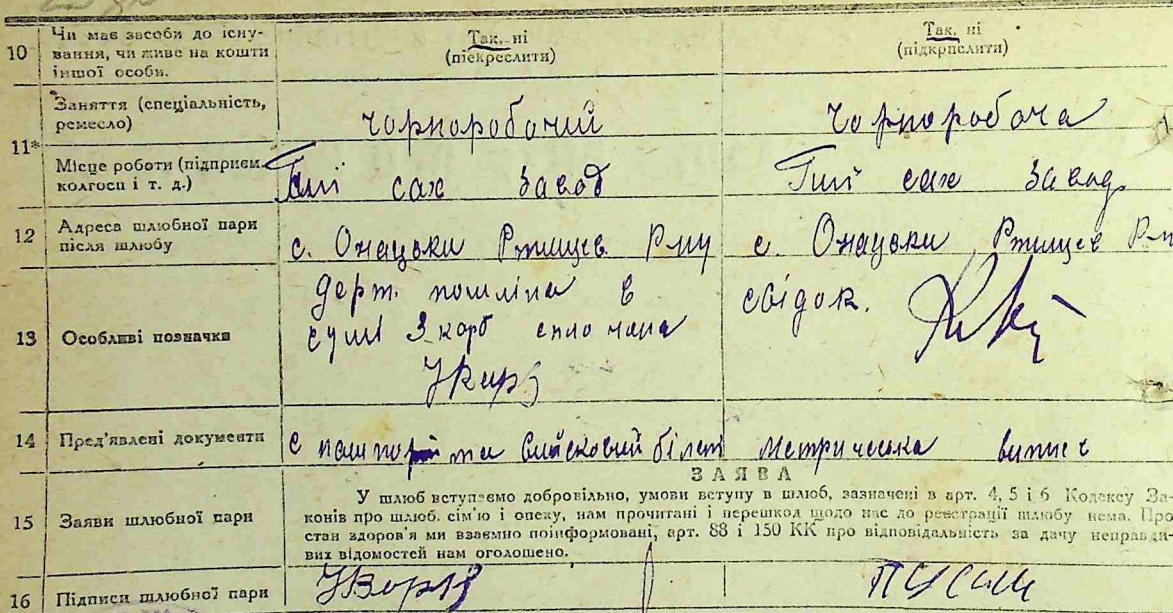 10 Чи має засоби до існу-
вання, чи живе на кошти
іншої особи.
Так, ні
(підкреслити)
Так, ні
(підкрпслити)
11*
Заняття (спеціальність,
ремесло)
чорноробочий
чорноробоча
Місце роботи (підприєм.
колгосп і т. д.)
сах завод
сах завод
12 Адреса шлюбної пари
після шлюбу
с. Онацьки Ржищев. Р-ну
с. Онацьки Ржищев Р-н
13 Особливі позначки
держ. пошліна в
сумі 3 карб сплочана
свідок.
14 Пред'явлені документи
є пашпорт та війсковий білет
метрическа выпис
15 Заяви шлюбної пари
ЗАЯВА
У шлюб вступаємо добровільно, умови вступу в шлюб, зазначені в арт. 4, 5 і 6 Кодексу За-
конів про шлюб. сім'ю і опеку, нам прочитані і перешкод щодо нас до реєстрації шлюбу нема. Про
стан здоров'я ми взаємно поінформовані, арт. 88 і 150 КК про відповідальність за дачу неправди-
вих відомостей нам оголошено.
16 Підписи шлюбної пари